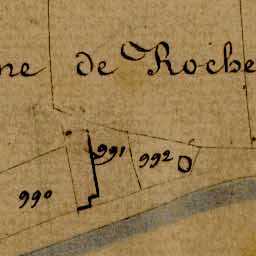 ne de Roche
991
992
990